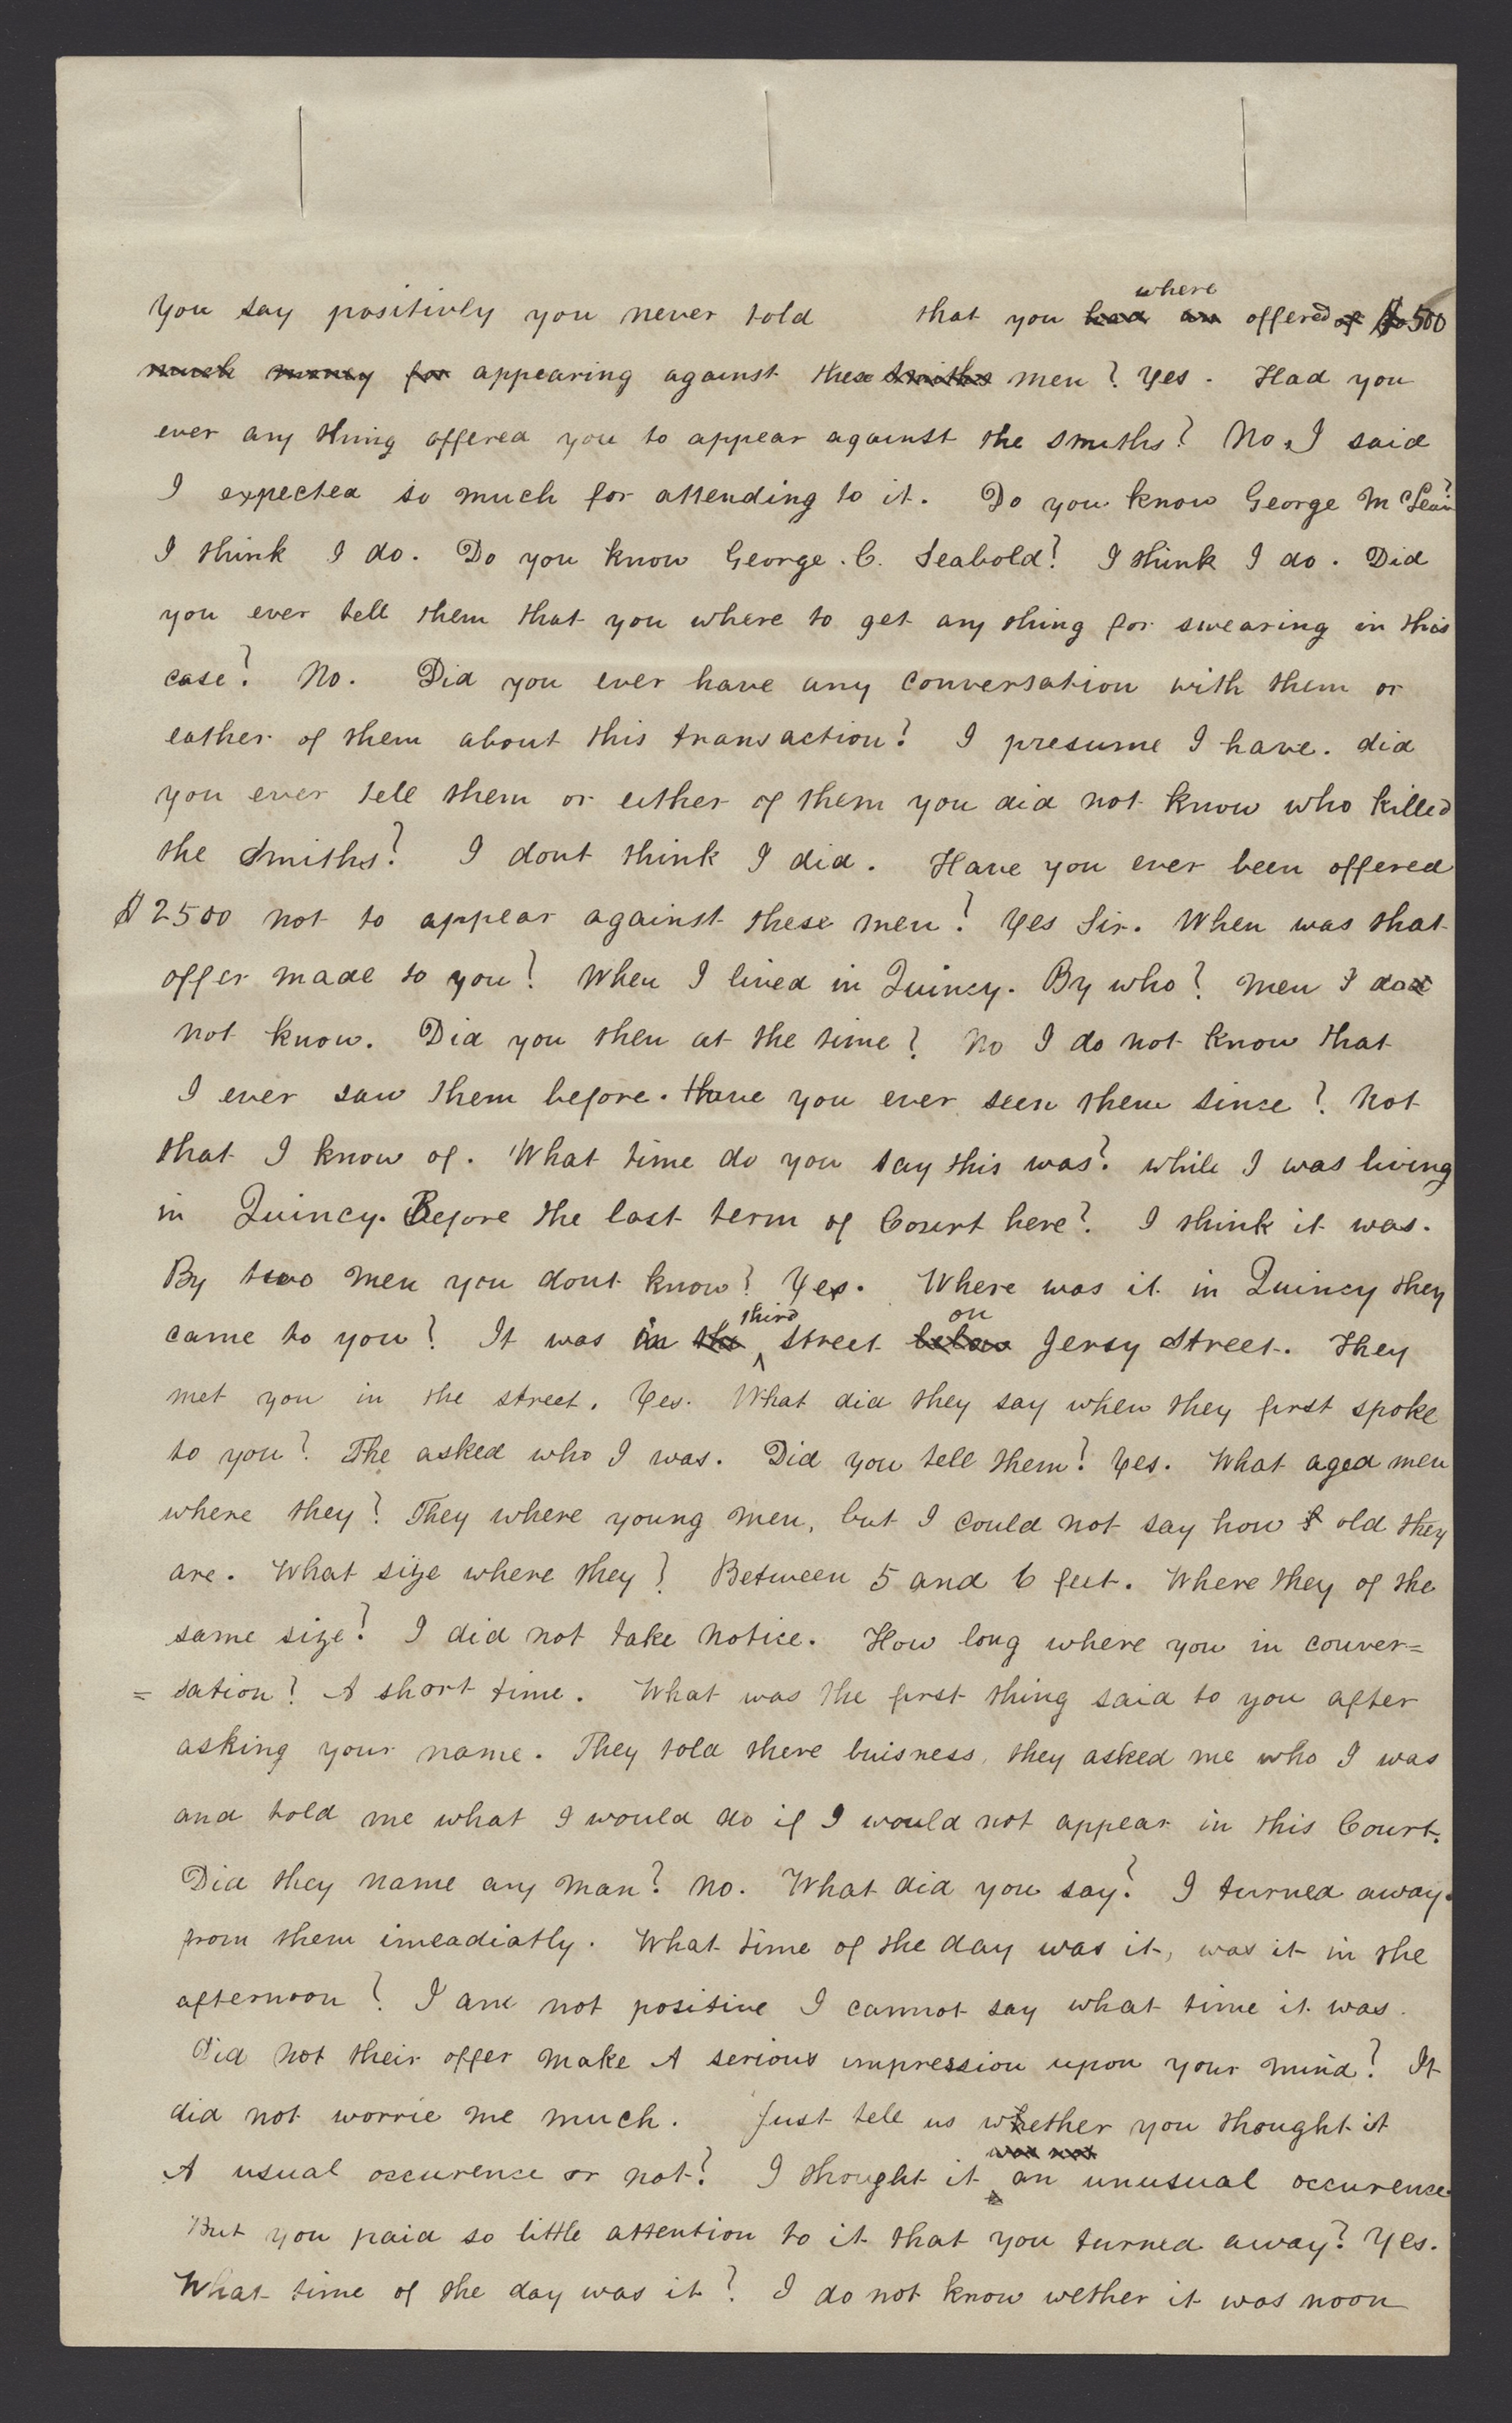 You say positivly you never told that you where had an offered of $500
much money for appearing against these Smiths men? Yes. Had you
ever any thing offered you to appear against the smiths? No, I said
I expected so much for attending to it. Do you know George McLean?
I think I do. Do you know George. C. Seabold? I think I do. Did
you ever tell them that you where to get any thing for swearing in this
case? No. Did you ever have any conversation with them or
eather of them about this transaction? I presume I have. did
you ever tell them or either of them you did not know who killed
the Smiths? I dont think I did. Have you ever been offered
$2500 not to appear against these men? Yes Sir. When was that
offer made to you? When I lived in Quincy. By who? Men I do
not know. Did you then at the time? No I do not know that
I ever saw them before. Have you ever seen them since? Not
that I know of. What time do you say this was? while I was living
in Quincy. Before the last term of Court here? I think it was.
By two men you dont know? Yes. Where was it in Quincy they
came to you? It was in the third street below on Jersy Street. They
met you in the street. Yes. What did they say when they first spoke
to you? The asked who I was. Did you tell them? Yes. What aged men
where they? They where young men, but I could not say how old they
are. What size where they? Between 5 and 6 feet. Where they of the
same size? I did not take notice. How long where you in conver=
= sation? A short time. What was the first thing said to you after
asking your name. They told there buisness, they asked me who I was
and told me what I would do if I would not appear in this Court.
Did they name any man? No. What did you say? I turned away.
from them imeadiatly. What time of the day was it, was it in the
afternoon? I am not positive I cannot say what time it was.
Did not their offer make A serious impression upon your mind? It
did not worrie me much. Just tell us whether you thought it
A usual occurence or not? I thought it was not an unusual occurence.
But you paid so little attention to it that you turned away? Yes.
What time of the day was it? I do not know wether it was noon